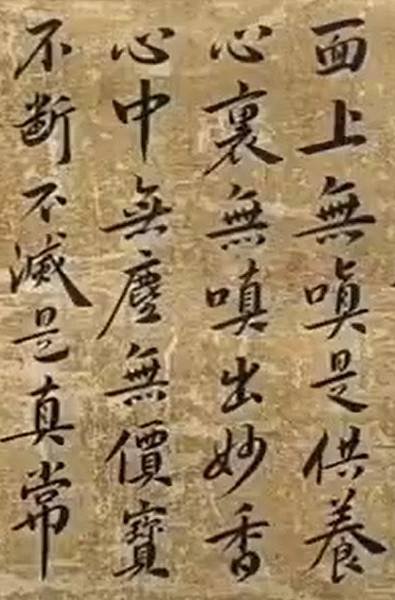 面上無嗔是供養
心裏無嗔出妙香
心中無塵無價寶
不斷不滅是真常